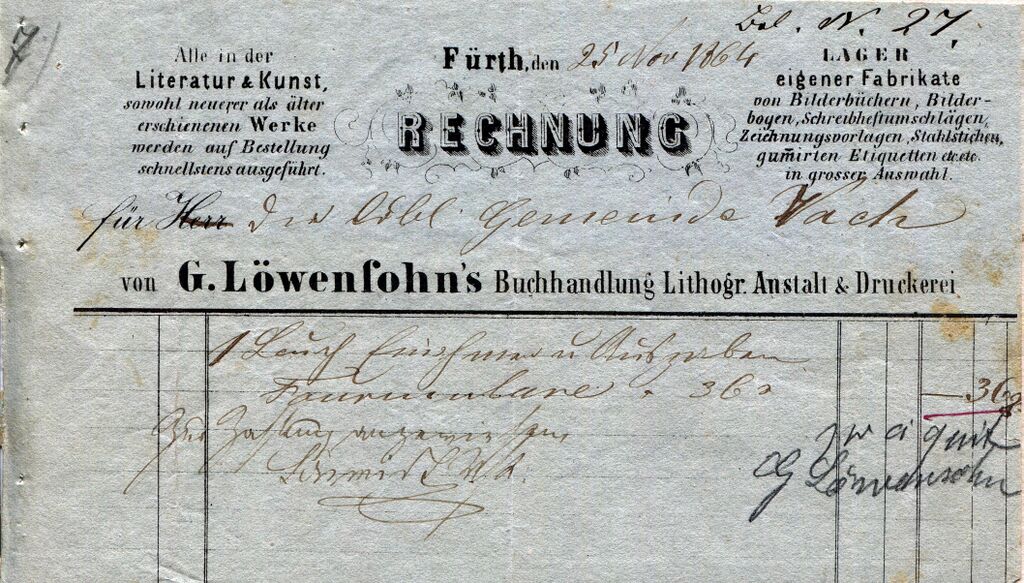 7)
Bel. N. 27.
Alle in der
Literatur & Kunst,
sowohl neuerer als älter
erschienenen Werke
werden auf Bestellung
schnellstens ausgeführt.
Fürth, den 25 Nov 1864
RECHNUNG
LAGER
eigener Fabrikate
von Bilderbüchern, Bilder-
bogen, Schreibheftumschlägen,
Zeichnungsvorlagen, Stahlstichen,
gum̅irten Etiquetten etc etc.
in grosser Auswahl.
für Herr Die löbl. Gemeinde Vach
von G. Löwenſohn's Buchhandlung Lithogr. Anstalt & Druckerei
1 Buch Einnahmen u Ausgaben
36 x — 36 x
Zur Zahlung angewiesen
G Löwensohn